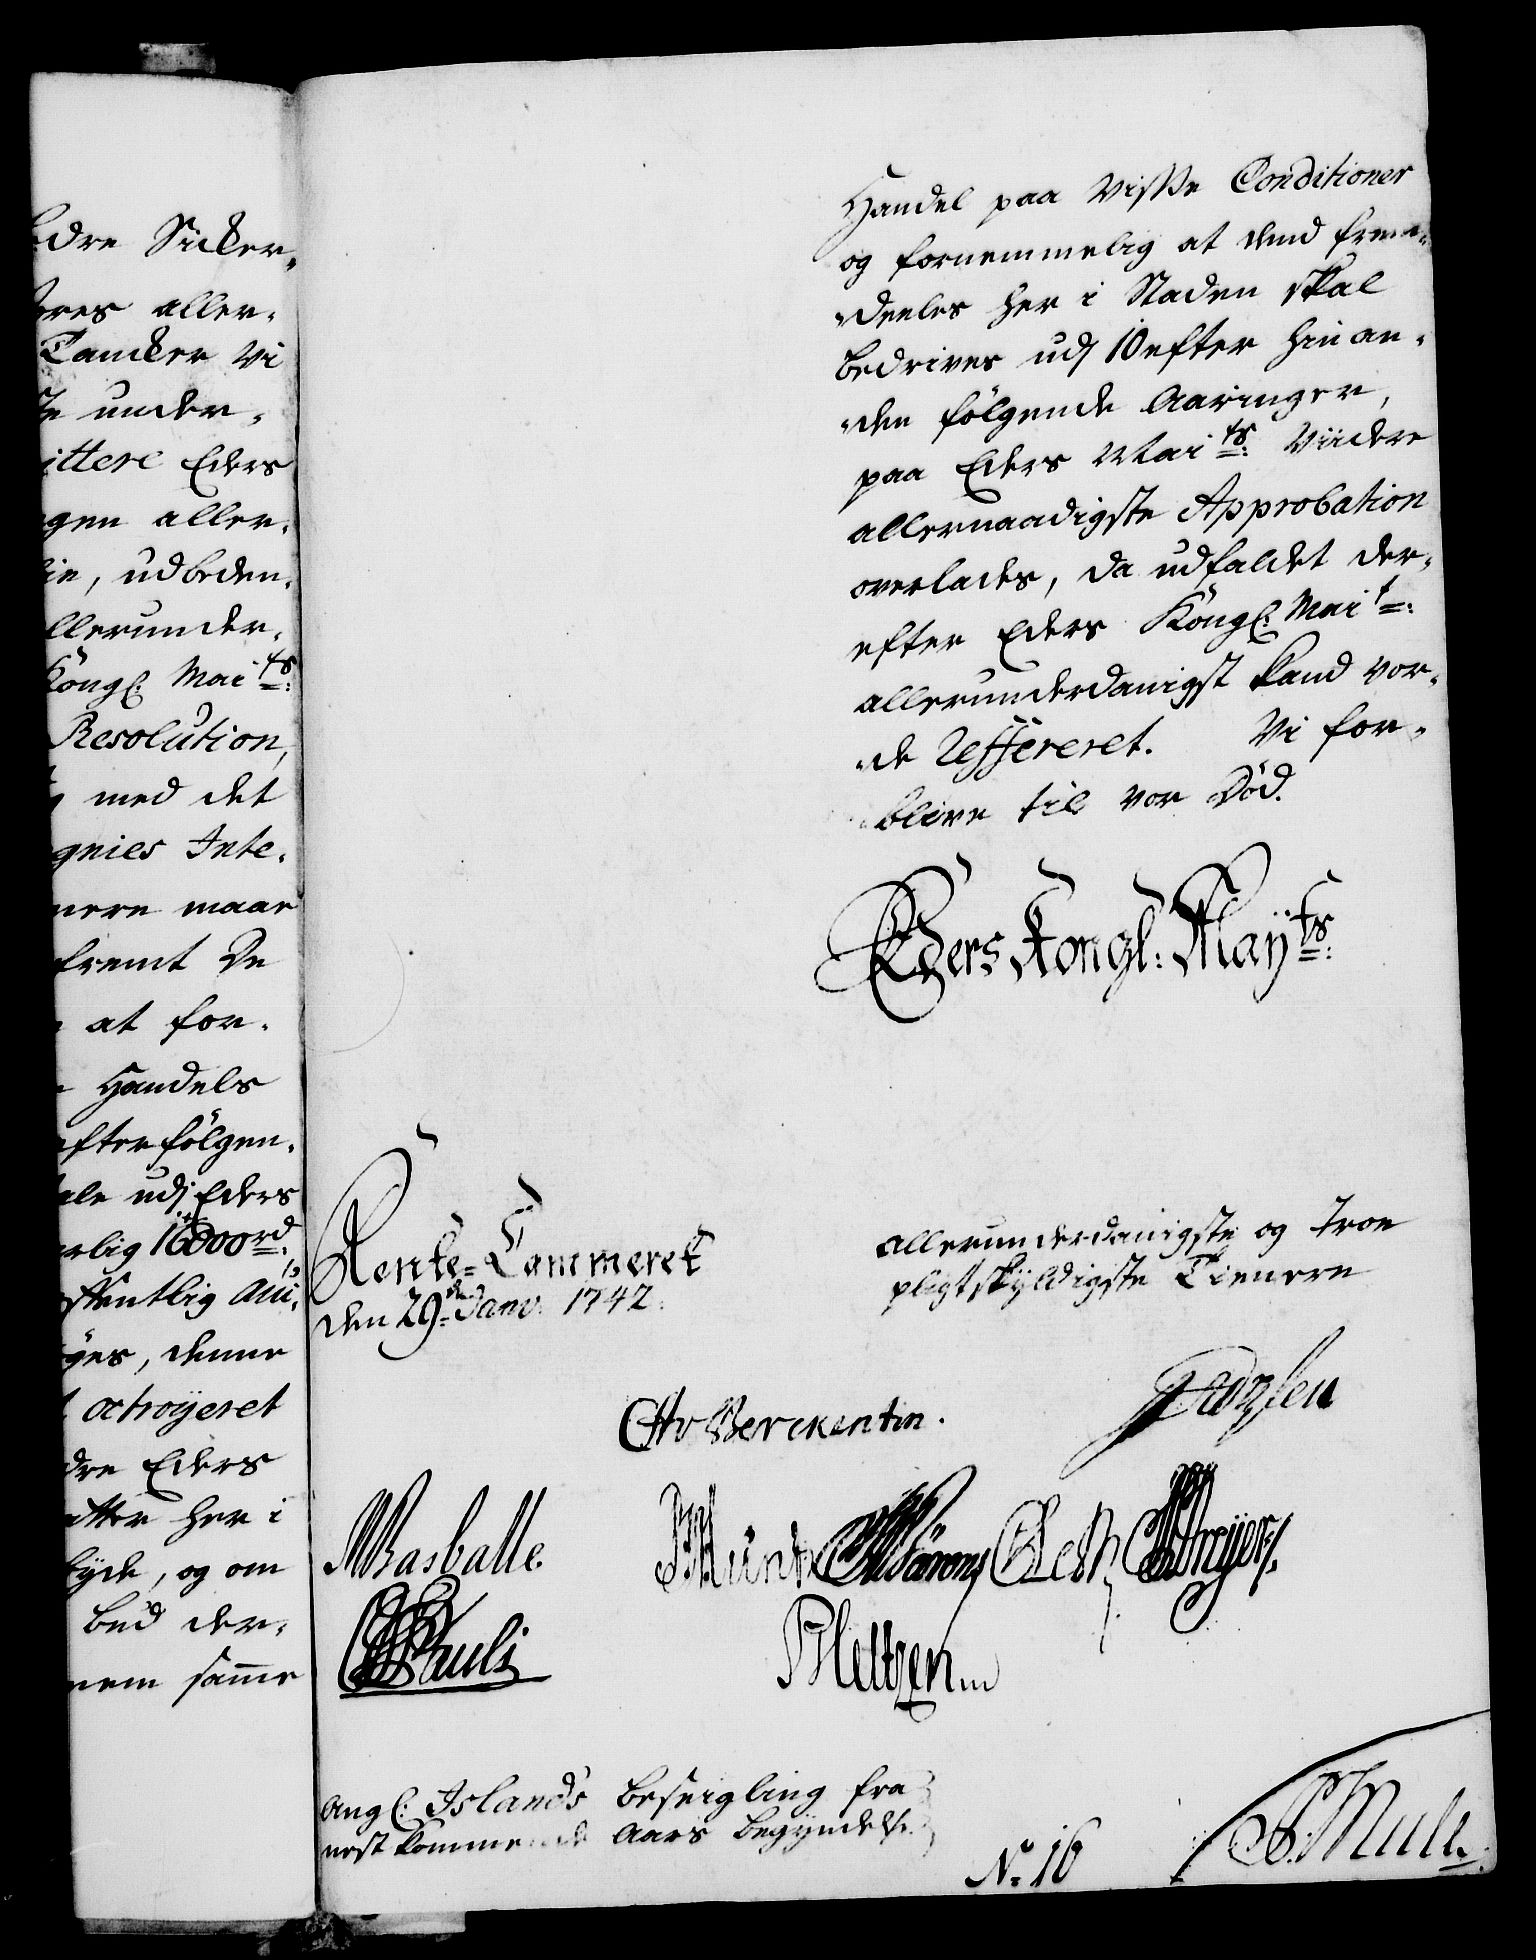 edre Sicker-
eres aller-
Tancker Vi
te under-
ittere Eders
gen aller-
ie, udbeden-
llerunder-
Kongl: Mai ts:
Resolution,
med det
gnies Inte-
nere maae
fremt De
at for-
Handels
efterfölgen-
ale udj Eders
rlig 16000 rd:
ffentlig Au-
yes, denne
octroyeret
dre Eders
atter her i
tyde, og om
bud der-
nem samme
Handel paa Visse Conditioner
og fornemmelig at dend frem-
-deeles her i Staden skal
bedrives udj 10 efter hinan-
-den fölgende Aaringer,
paa Eders Mai ts: Viidere
allernaadigste Approbation
overlades, da udfaldet der-
efter Eders Kongl: Mai t:
allerunderdanigst kand vor-
-de Refereret. Vi for-
-blive til vor Död.
Eders Kongl: May ts:
Rente-Cammeret
den 29de Janv: 1742.
allerunderdanigste og troe
pligtskyldigste Tienere
Otto Berckentin.
MBasballe
Pauli
Angl: Islands beseigling fra
nest kommende Aars begyndelse.
No: 16
Mule